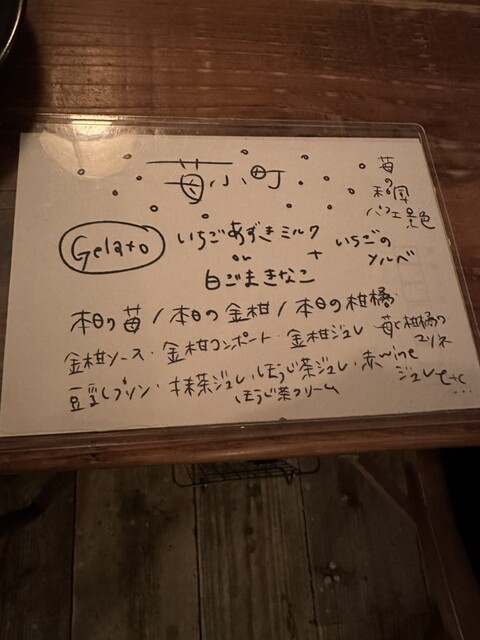 苺小町
苺の和風パフェ景色
Gelato
いちごあずきミルク
or
白ごまきなこ
+
いちごのソルベ
本日の苺/本日の金柑/本日の柑橘
金柑ソース・金柑コンポート・金柑ジュレ
苺と柑橘のマリネ
豆乳プリン・抹茶ジュレ・ほうじ茶ジュレ・赤wineジュレ etc...
ほうじ茶クリーム